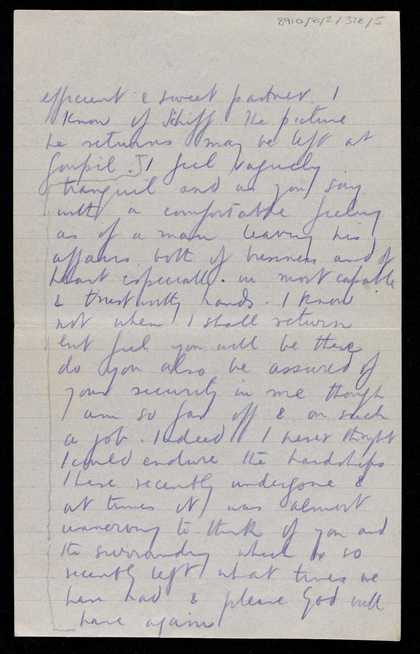 8910/8/2/328/5
efficient & sweet partner. I
know if Schiff the picture
he returns may be left at
Goupil. I feel vaguely
tranquil and as you say
with a comfortable feeling
as of a man leaving his
affairs both of business and of
heart especially. in most capable
& trustworthy hands. I know
not when I shall return
but feel you will be there
do you also be assured of
your security in me though
I am so far off & on such
a job. Indeed I never thought
I could endure the hardships
I have recently undergone &
at times it was almost
unnerving to think of you and
the surrounding which so
recently left what times we
have had & please God will
have again